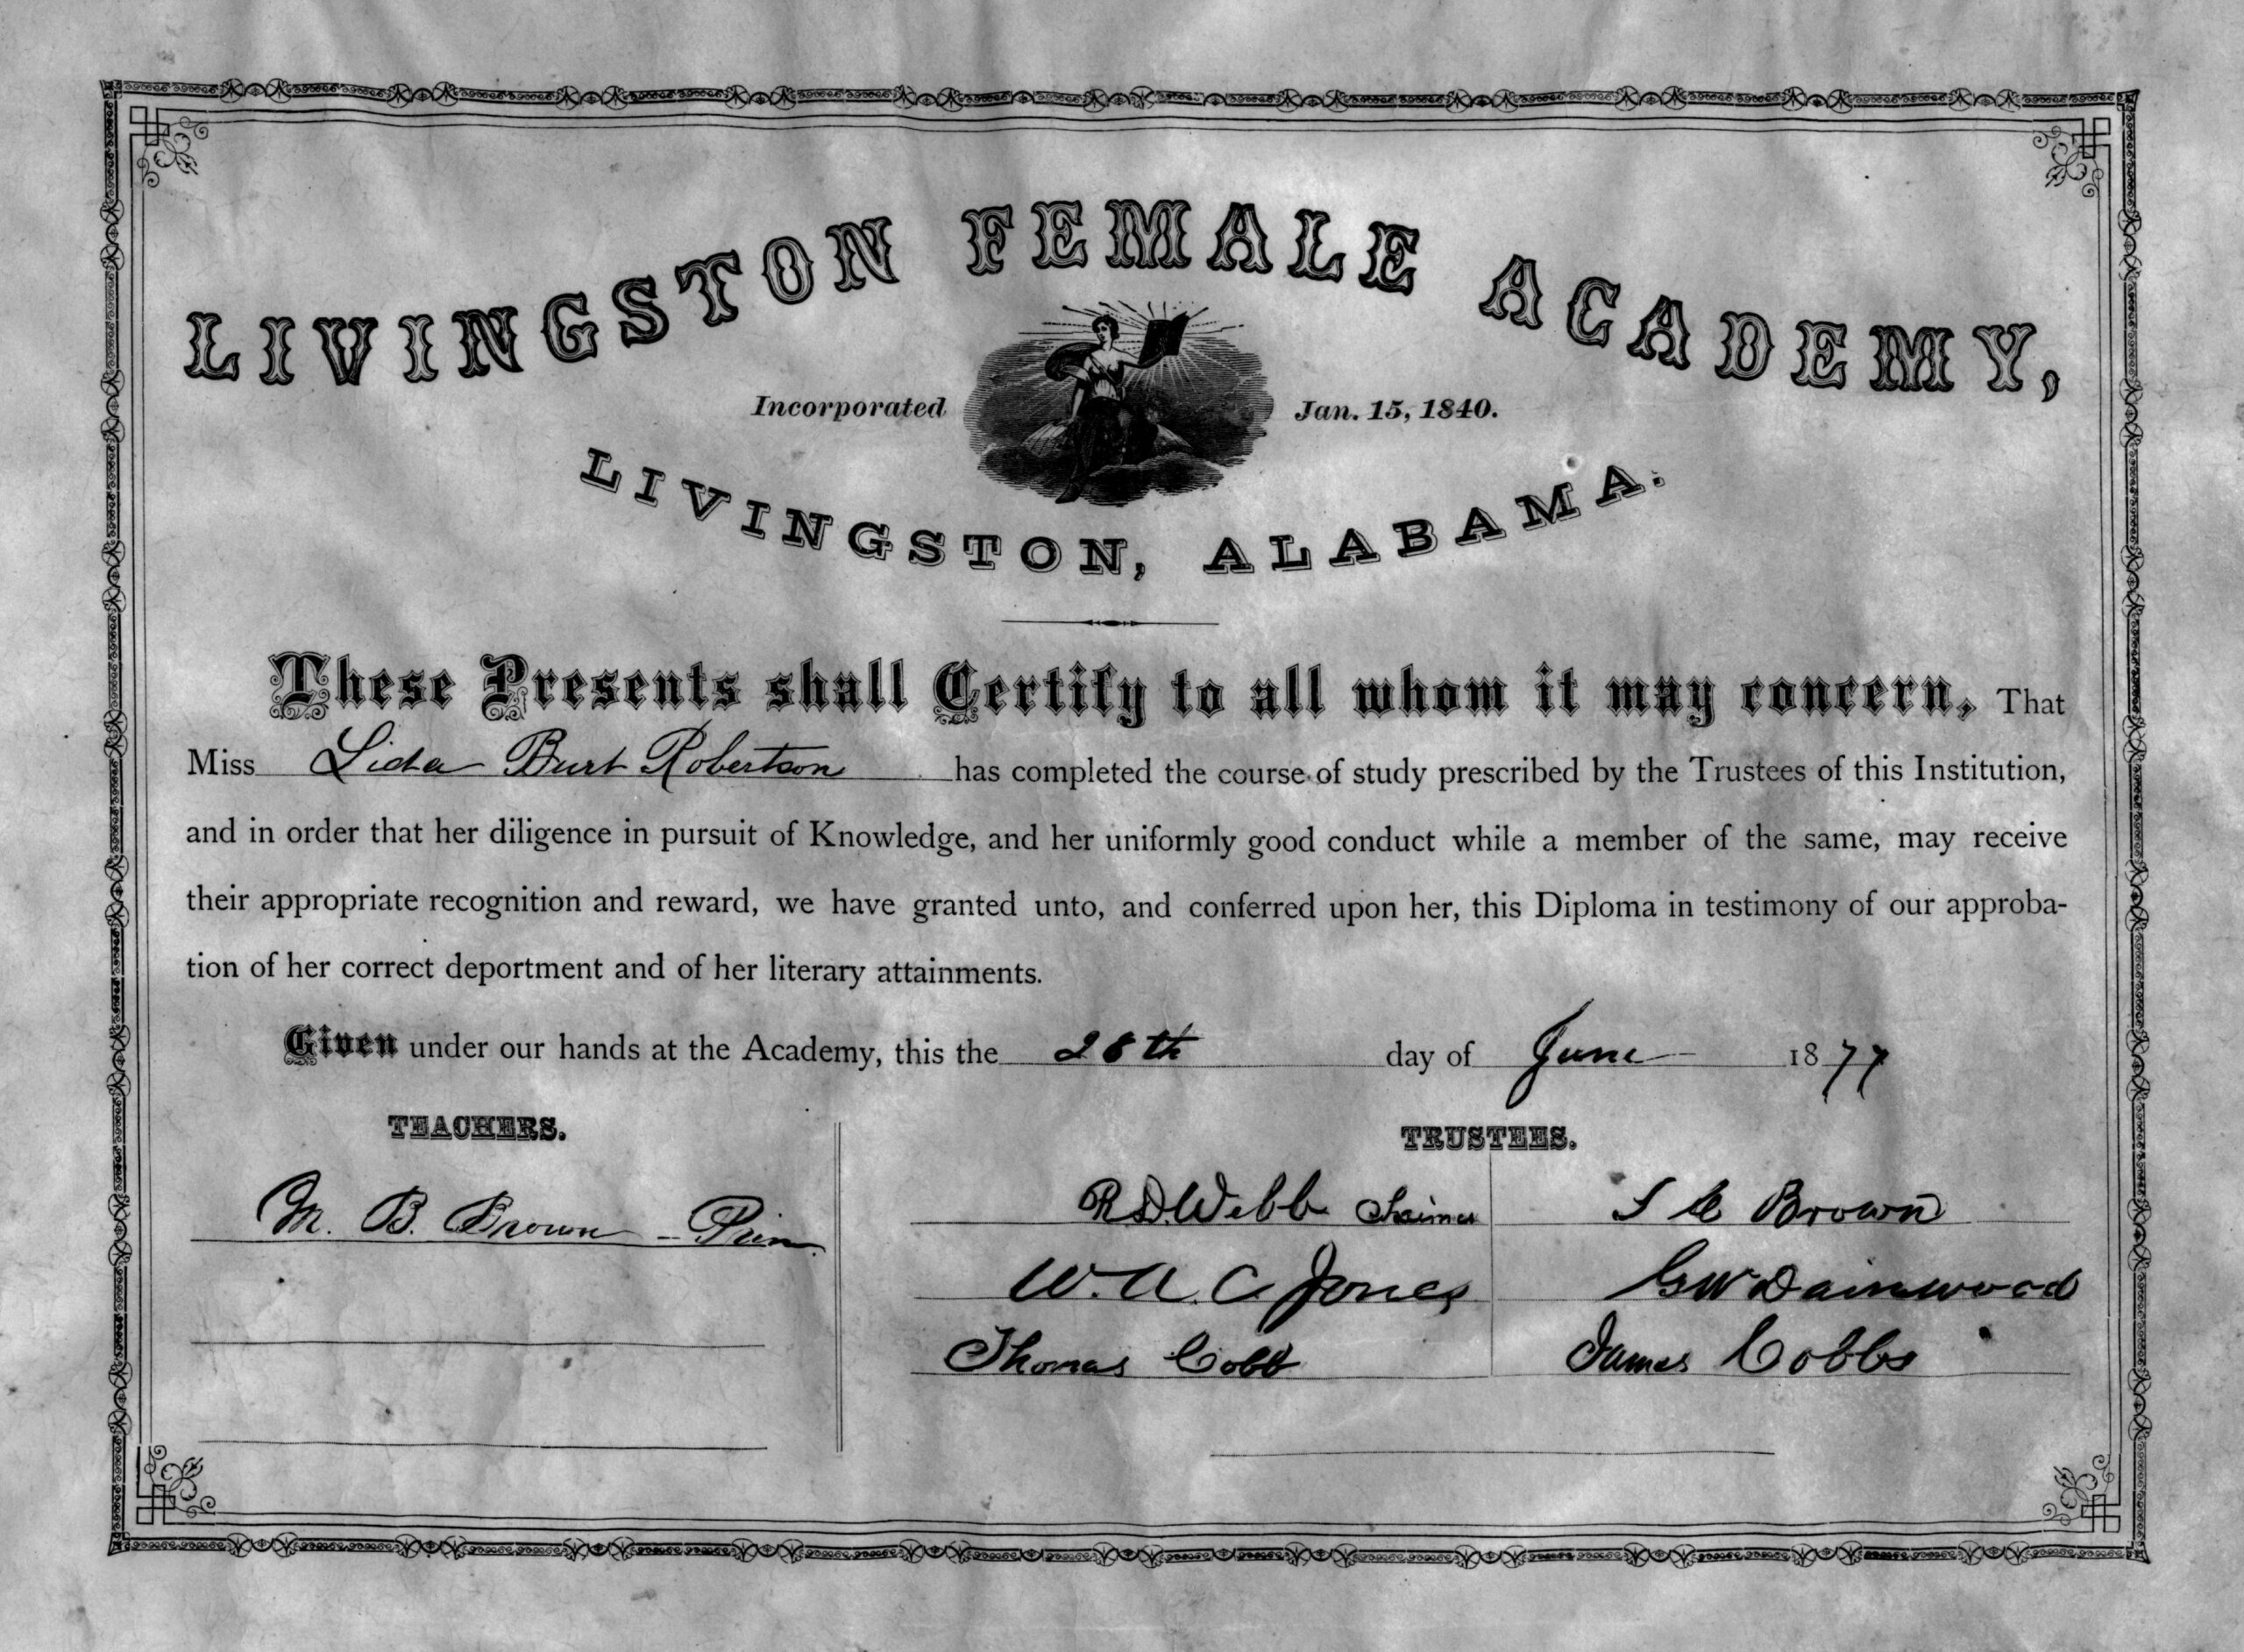 LIVINGSTON FEMALE ACADEMY,
Incorporated Jan. 15, 1840.
LIVINGSTON, ALABAMA.
These Presents shall Certify to all whom it may concern, That
Miss Lida Burt Robertson has completed the course of study prescribed by the Trustees of this Institution,
and in order that her diligence in pursuit of Knowledge, and her uniformly good conduct while a member of the same, may receive
their appropriate recognition and reward, we have granted unto, and conferred upon her, this Diploma in testimony of our approba-
tion of her correct deportment and of her literary attainments.
Given under our hands at the Academy, this the 28th day of June 1877
TEACHERS.
M. B. Brown - Prin
TRUSTEES.
R D. Webb
W. A. C. Jones
Thomas Cobb
Brown
G W Dainwood
James Cobbs